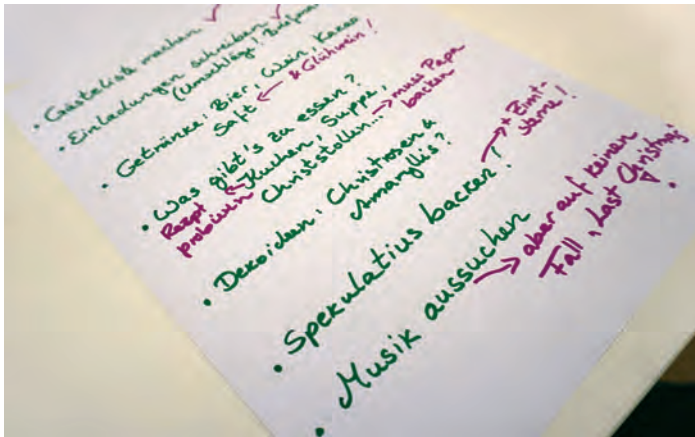 • Gästeliste machen ✓
• Einladungen schreiben ✓
(Umschläge! Briefmar
• Getränke: Bier, Wein, Kakao
Saft ← & Glühwein!
• Was gibt's zu essen?
Rezept ← Kuchen, Suppe,
probieren Christstollen... → muss Papa
backen
• Dekoideen: Christrosen &
Amaryllis?
• Spekulatius backen? → + Zimt-
sterne!
• Musik aussuchen
→ aber auf keinen
Fall "Last Christmas"